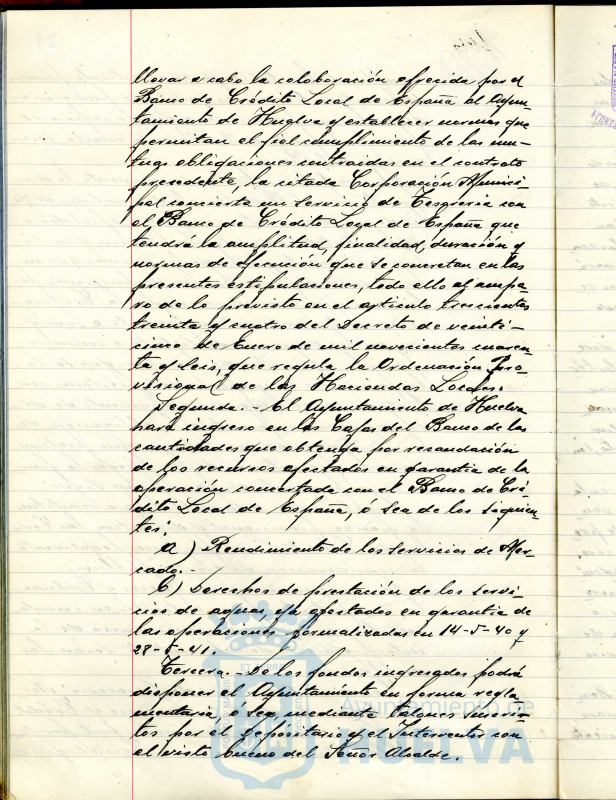 llevar a cabo la colaboración ofrecida por el
Banco de Crédito Local de España al Ayun-
tamiento de Huelva y establecer normas que
permitan el fiel cumplimiento de las mu-
tuas obligaciones contraidas en el contrato
precedente, la citada Corporación Munici-
pal concierta un Servicio de Tesorería con
el Banco de Crédito Local de España que
tendrá la amplitud, finalidad, duración y
normas de ejecución que se concretan en las
presentes estipulaciones, todo ello al ampa-
ro de lo previsto en el artículo trescientos
treinta y cuatro del Decreto de veinti-
cinco de Enero de mil novecientos cuaren-
ta y seis, que regula la Ordenación Pro-
visional de las Haciendas Locales.
Segunda.- El Ayuntamiento de Huelva
hará ingreso en las Cajas del Banco de las
cantidades que obtenga por recaudación
de los recursos afectados en garantía de la
operación concertada con el Banco de Cré-
dito Local de España, ó sea de los siguien-
tes:
a) Rendimiento de los Servicios de Mer-
cado.-
b) Derechos de prestación de los servi-
cios de aguas, ya afectados en garantía de
las operaciones formalizadas en 14-5-40 y
28-5-41.
Tercera.- De los fondos ingresados podrá
disponer el Ayuntamiento en forma regla-
mentaria, ó sea, mediante talones suscri-
tos por el Depositario y el Interventor con
el visto bueno del Señor Alcalde.
Ayuntamiento de
HUELVA